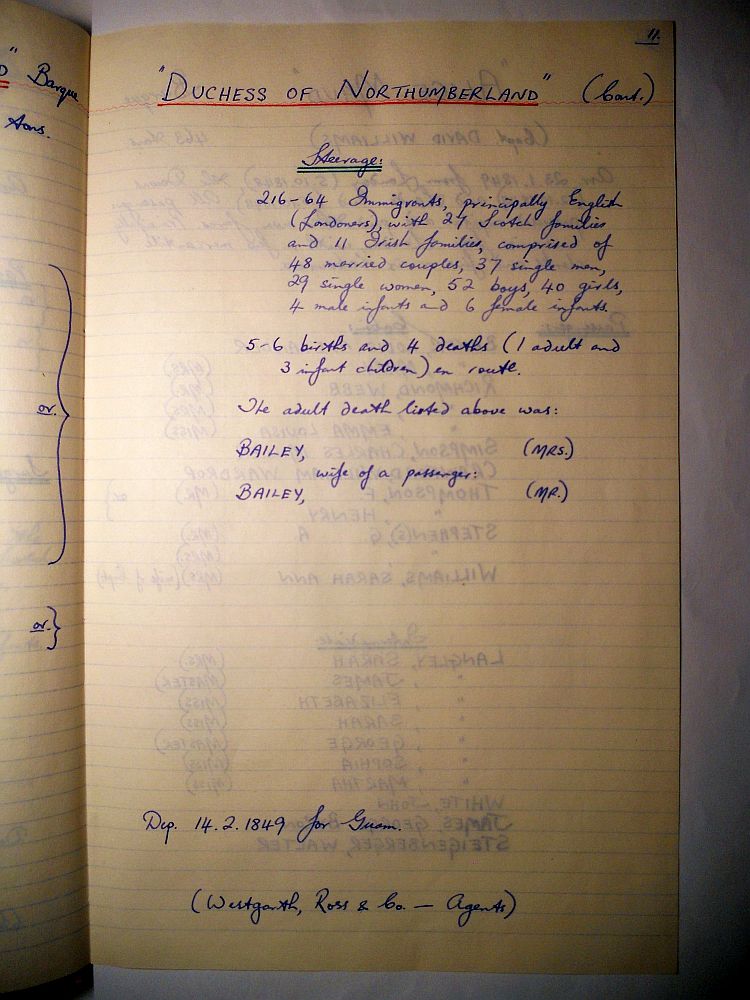 " Barque
Tons.
or.
or.
11.
"DUCHESS OF NORTHUMBERLAND" (Cont.)
Steerage:
216-64 Immigrants, principally English
(Londoners), with 27 Scotch families
and 11 Irish families, comprised of
48 married couples, 37 single men,
29 single women, 52 boys, 40 girls,
4 male infants and 6 female infants.
5-6 births and 4 deaths (1 adult and
3 infant children) en route.
The adult death listed above was:
BAILEY, (MRS.)
wife of a passenger:
BAILEY, (MR.)
Dep. 14.2.1849 for Guam.
(Westgarth, Ross & Co. — Agents)